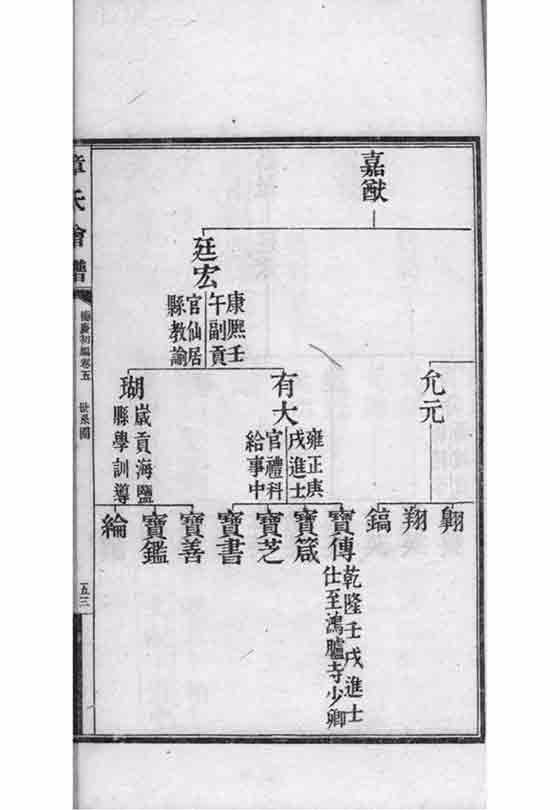 嘉猷
廷宏
康熈壬
午副貢
官仙居
縣教諭
允元
有大
雍正庚
戌進士
官禮科
給事中
瑚
嵗貢海鹽
縣學訓導
翔
鎬
寶傳
乾隆壬戌進士
仕至鴻臚寺少卿
寶箴
寶芝
寶書
寶善
寶鑑
綸
章氏會譜
初編卷五
世系圖
五三